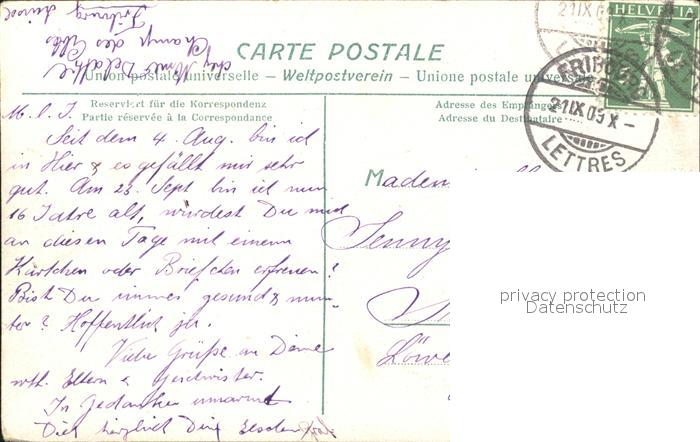 chez Mme Delatte
Champ des Cibles
Fribourg Suisse
CARTE POSTALE
Union postale universelle – Weltpostverein – Unione postale universale
HELVETIA
21 IX 09
FRIBOURG
21 IX 09 X –
LETTRES
Reserviert für die Korrespondenz
Partie réservée à la Correspondance
Adresse des Empfängers
Adresse du Destinataire
M. l. J.
Seit dem 4. Aug. bin ich
in Hier & es gefällt mir sehr
gut. Am 23. Sept bin ich nun
16 Jahre alt, würdest Du mich
an diesen Tage mit einem
Kärtchen oder Briefchen erfreuen?
Bist Du immer gesund & mun-
ter? Hoffentlich ja.
Viele Grüße an Deine
wth. Eltern & Geschwister.
In Gedanken umarmt
Dich herzlich Dein
Madem
Jenny
Löwe
privacy protection
Datenschutz